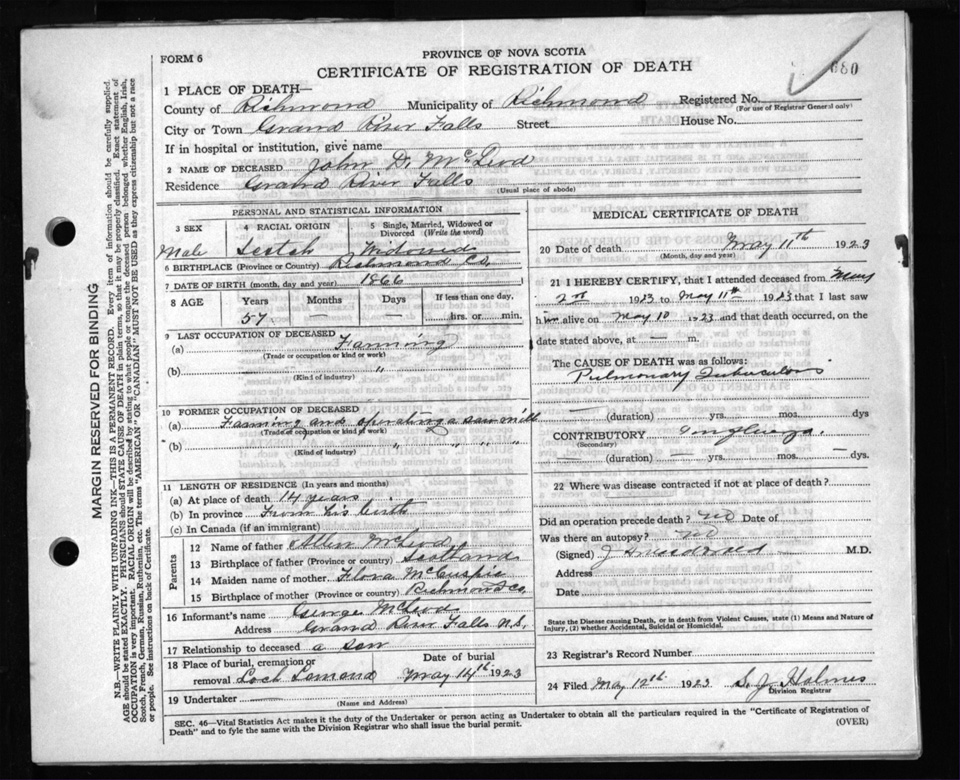 FORM 6
PROVINCE OF NOVA SCOTIA
CERTIFICATE OF REGISTRATION OF DEATH
1 PLACE OF DEATH—
County of Richmond Municipality of Richmond Registered No.
(For use of Registrar General only)
City or Town Grand River Falls Street House No.
If in hospital or institution, give name
2 NAME OF DECEASED John D. McLeod
Residence Grand River Falls
(Usual place of abode)
PERSONAL AND STATISTICAL INFORMATION
3 SEX 4 RACIAL ORIGIN 5 Single, Married, Widowed or Divorced (Write the word)
Male Scotch Widowed
6 BIRTHPLACE (Province or Country) Richmond Co.
7 DATE OF BIRTH (month, day and year) 1866
8 AGE Years Months Days If less than one day,
57 — — hrs. or min.
9 LAST OCCUPATION OF DECEASED
(a) Farming
(Trade or occupation or kind or work)
(b) "
(Kind of industry)
10 FORMER OCCUPATION OF DECEASED
(a) Farming and operating a saw mill
(Trade or occupation or kind of work)
(b) " " " "
(Kind of industry)
11 LENGTH OF RESIDENCE (In years and months)
(a) At place of death 14 years
(b) In province From his birth
(c) In Canada (if an immigrant)
Parents
12 Name of father Allen McLeod
13 Birthplace of father (Province or country) Scotland
14 Maiden name of mother Flora McCuspic
15 Birthplace of mother (Province or country) Richmond Co.
16 Informant's name George McLeod
Address Grand River Falls N.S.
17 Relationship to deceased a son
18 Place of burial, cremation or removal Loch Lomond Date of burial May 14th 1923
19 Undertaker
(Name and Address)
MEDICAL CERTIFICATE OF DEATH
20 Date of death May 11th 1923
(Month, day and year)
21 I HEREBY CERTIFY, that I attended deceased from May
2nd 1923 to May 11th 1923 that I last saw
him alive on May 10 1923 and that death occurred, on the
date stated above, at — m.
The CAUSE OF DEATH was as follows:
Pulmonary Tuberculosis
— (duration) — yrs. — mos. — dys
CONTRIBUTORY
(Secondary)
— (duration) — yrs. — mos. — dys.
22 Where was disease contracted if not at place of death?
Did an operation precede death? no Date of
Was there an autopsy? no
(Signed) M.D.
Address
Date
State the Disease causing Death, or in death from Violent Causes, state (1) Means and Nature of Injury, (2) whether Accidental, Suicidal or Homicidal.
23 Registrar's Record Number
24 Filed May 12th 1923 S. J. Holmes
Division Registrar
SEC. 46—Vital Statistics Act makes it the duty of the Undertaker or person acting as Undertaker to obtain all the particulars required in the "Certificate of Registration of
Death" and to fyle the same with the Division Registrar who shall issue the burial permit.
(OVER)
MARGIN RESERVED FOR BINDING
N.B.—WRITE PLAINLY WITH UNFADING INK—THIS IS A PERMANENT RECORD. Every item of information should be carefully supplied.
AGE should be stated EXACTLY. PHYSICIANS should STATE CAUSE OF DEATH in plain terms, so that it may be properly classified. Exact statement of
OCCUPATION is very important. RACIAL ORIGIN will be described by stating to what people or tongue the deceased person belonged, whether English, Irish,
Scotch, French, German, Russian, Ruthenian, etc. The terms "AMERICAN" OR "CANADIAN" MUST NOT BE USED as they express citizenship but not a race
or people. See instructions on back of Certificate.